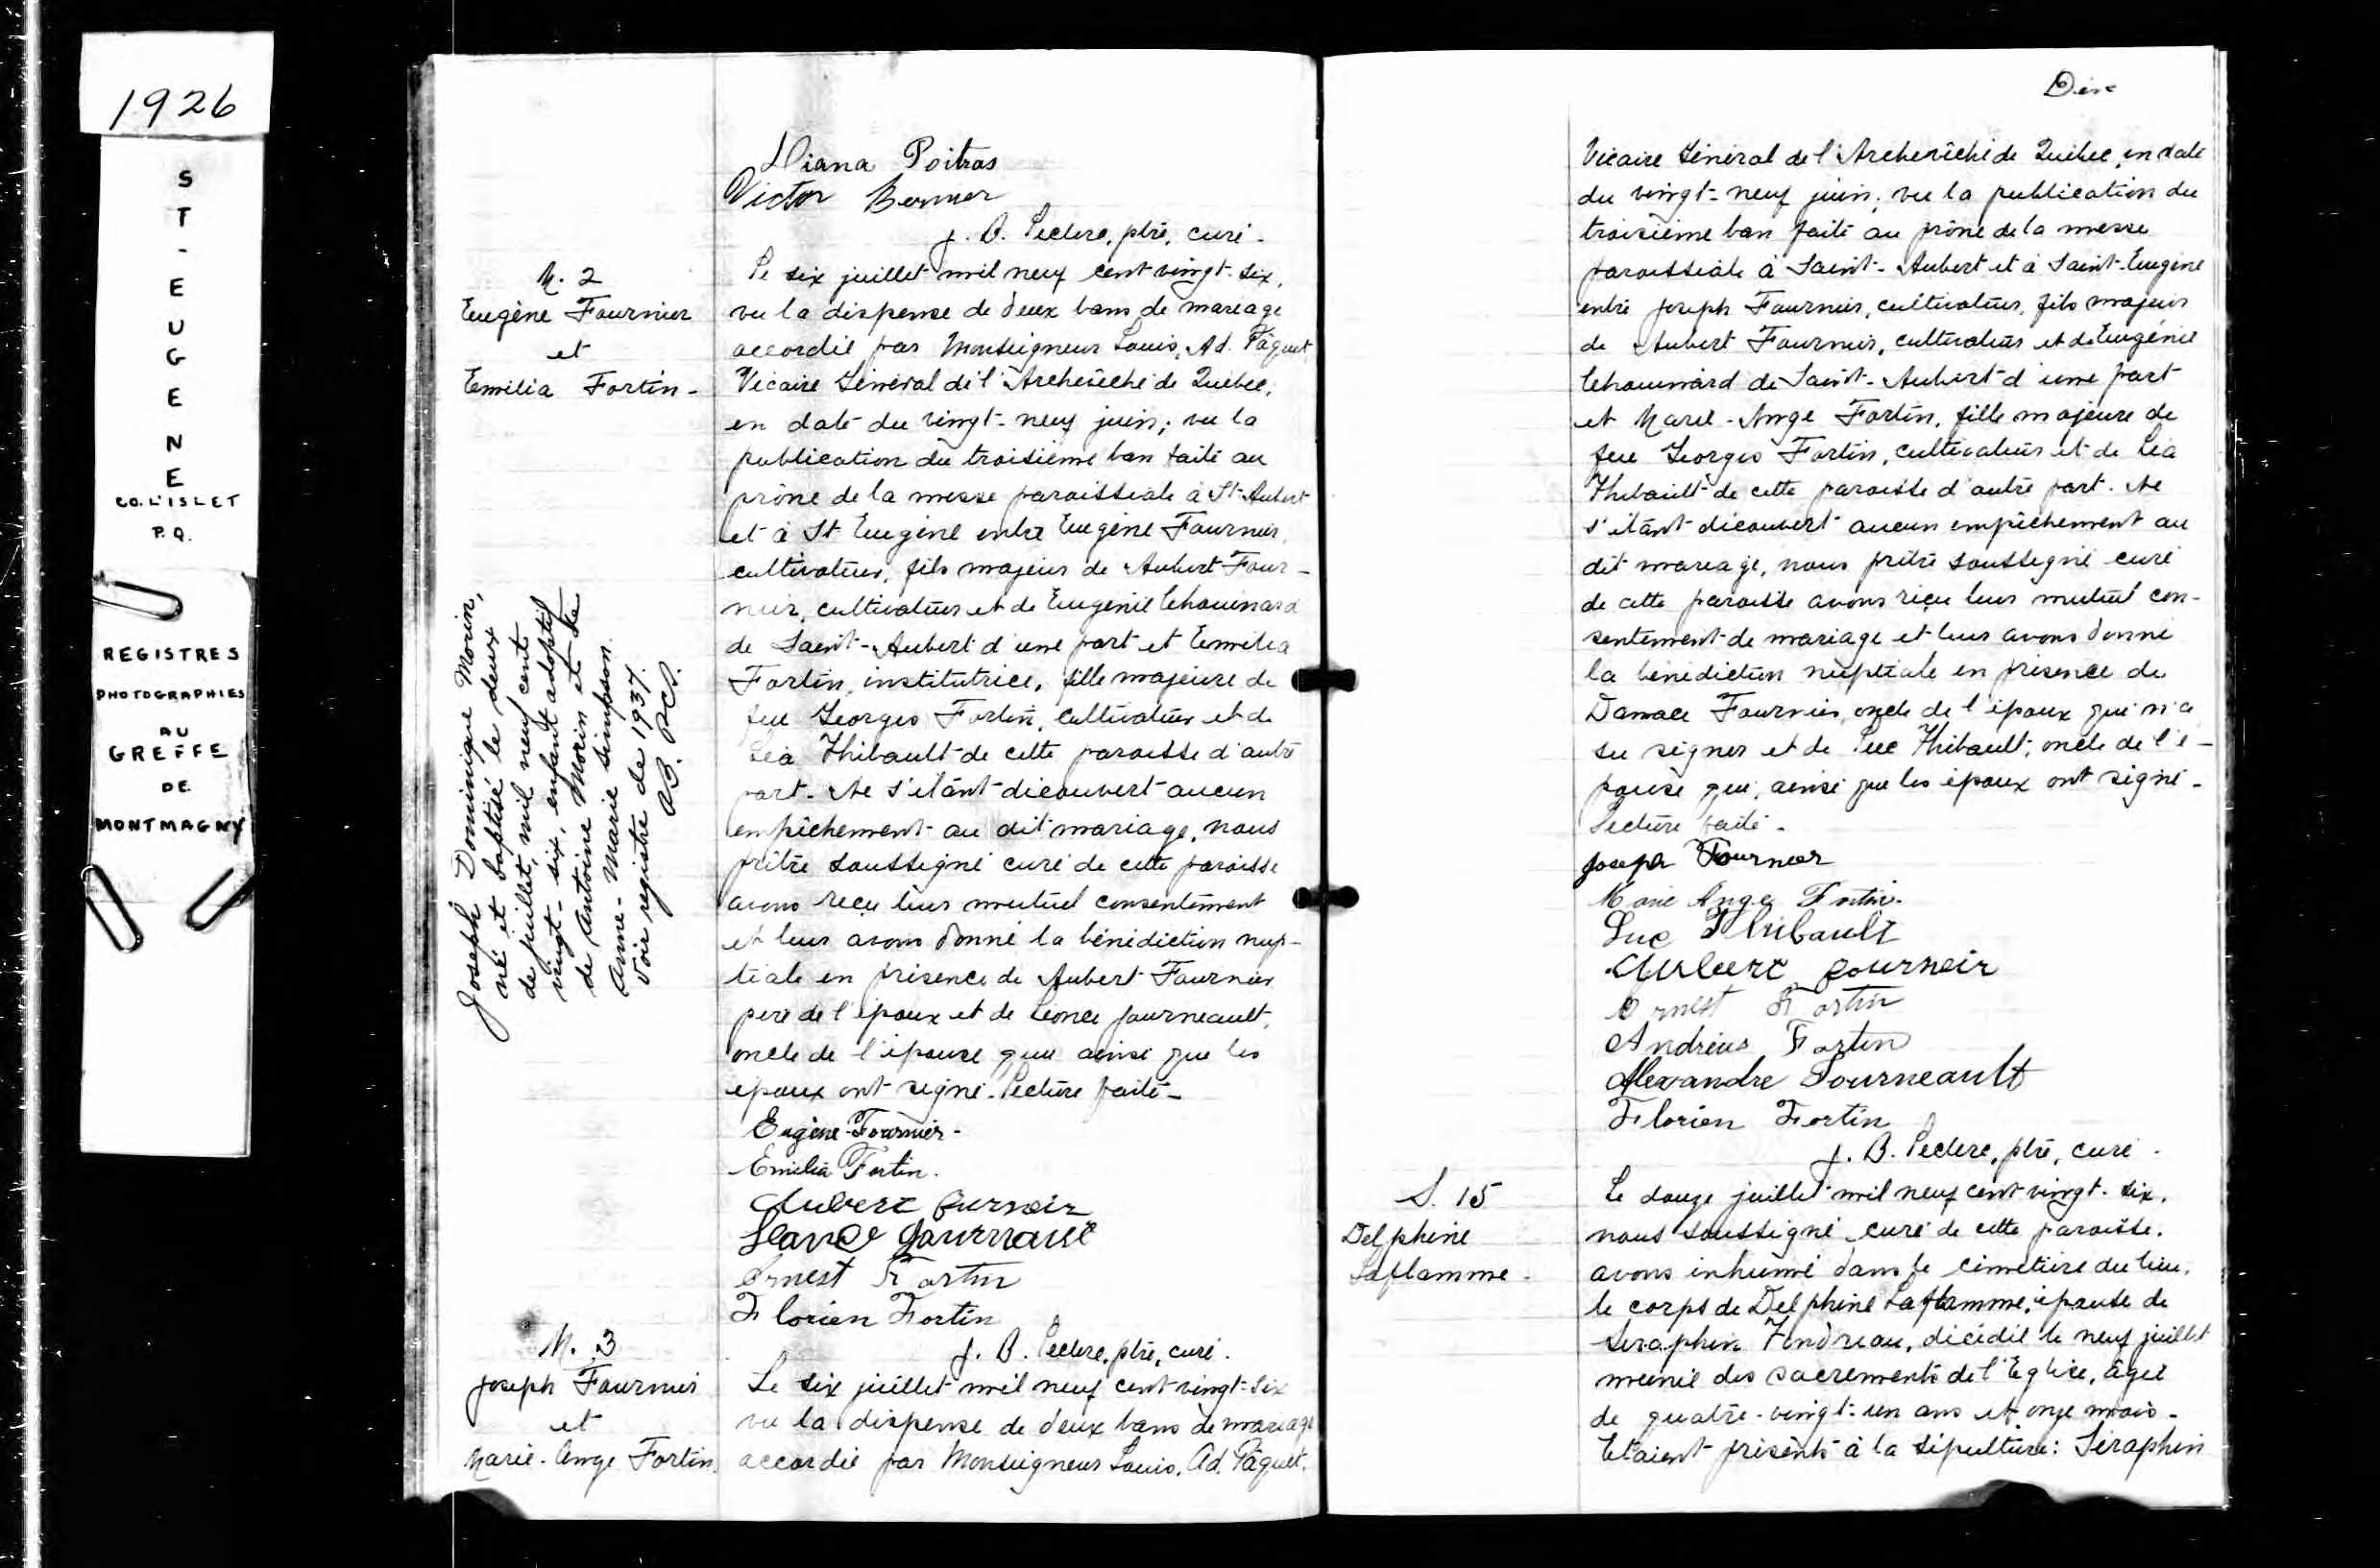 1926
ST-EUGENE
CO. L'ISLET
P.Q.
REGISTRES
PHOTOGRAPHIES
AU
GREFFE
DE
MONTMAGNY
Diana Poitras
Victor Bernier
J. B. Leclerc, ptre, curé.
M. 2
Eugène Fournier
et
Emilia Fortin.
Le six juillet mil neuf cent vingt-six,
vu la dispense de deux bans de mariage
accordée par Monseigneur Louis. Ad. Pâquet
Vicaire Général de l'Archevêché de Québec,
en date du vingt-neuf juin; vu la
publication du troisième ban faite au
prône de la messe paroissiale à St-Aubert
et à St Eugène entre Eugène Fournier,
cultivateur, fils majeur de Aubert Four-
nier, cultivateur et de Eugénie Chouinard
de Saint-Aubert d'une part et Emilia
Fortin, institutrice, fille majeure de
feu Georges Fortin, cultivateur et de
Léa Thibault de cette paroisse d'autre
part. Ne s'étant découvert aucun
empêchement au dit mariage, nous
prêtre soussigné curé de cette paroisse
avons reçu leur mutuel consentement
et leur avons donné la bénédiction nup-
tiale en présence de Aubert Fournier
père de l'époux et de Léonce Journeault,
oncle de l'épouse qui ainsi que les
époux ont signé. Lecture faite.
Eugène Fournier.
Emilia Fortin.
Aubert Furnoir
Leance Journault
Ernest Fortin
Florien Fortin
J. B. Leclerc, ptre, curé.
Joseph Dominique Morin,
né et baptisé le deux
de juillet, mil neuf cent
vingt-six, enfant adoptif
de Antoine Morin et de
Anne-Marie Simpson.
Voir registre de 1937.
M. 3
Joseph Fournier
et
Marie-Ange Fortin.
Le six juillet mil neuf cent vingt-six
vu la dispense de deux bans de mariage
accordée par Monseigneur Louis. Ad. Pâquet.
Vicaire Général de l'Archevêché de Québec, en date
du vingt-neuf juin; vu la publication du
troisième ban faite au prône de la messe
paroissiale à Saint-Aubert et à Saint-Eugène
entre Joseph Fournier, cultivateur, fils majeur
de Aubert Fournier, cultivateur et de Eugénie
Chouinard de Saint-Aubert d'une part
et Marie-Ange Fortin, fille majeure de
feu Georges Fortin, cultivateur et de Léa
Thibault de cette paroisse d'autre part. Ne
s'étant découvert aucun empêchement au
dit mariage, nous prêtre soussigné curé
de cette paroisse avons reçu leur mutuel con-
sentement de mariage et leur avons donné
la bénédiction nuptiale en présence de
Damase Fournier, oncle de l'époux qui n'a
su signer et de Luc Thibault, oncle de l'é-
pouse qui, ainsi que les époux ont signé.
Lecture faite.
Joseph Fournier
Marie Ange Fortin.
Luc Thibault
Aubert Fournoir
Ernest Fortin
Andréus Fortin
Alexandre Journeault
Florien Fortin
J. B. Leclerc, ptre, curé.
S. 15
Delphine
Laflamme.
Le douze juillet mil neuf cent vingt-six,
nous soussigné curé de cette paroisse,
avons inhumé dans le cimetière du lieu,
le corps de Delphine Laflamme, épouse de
Séraphin Fondreau, décédée le neuf juillet
munie des sacrements de l'Eglise, âgée
de quatre-vingt-un ans et onze mois.
Etaient présents à la sépulture: Séraphin